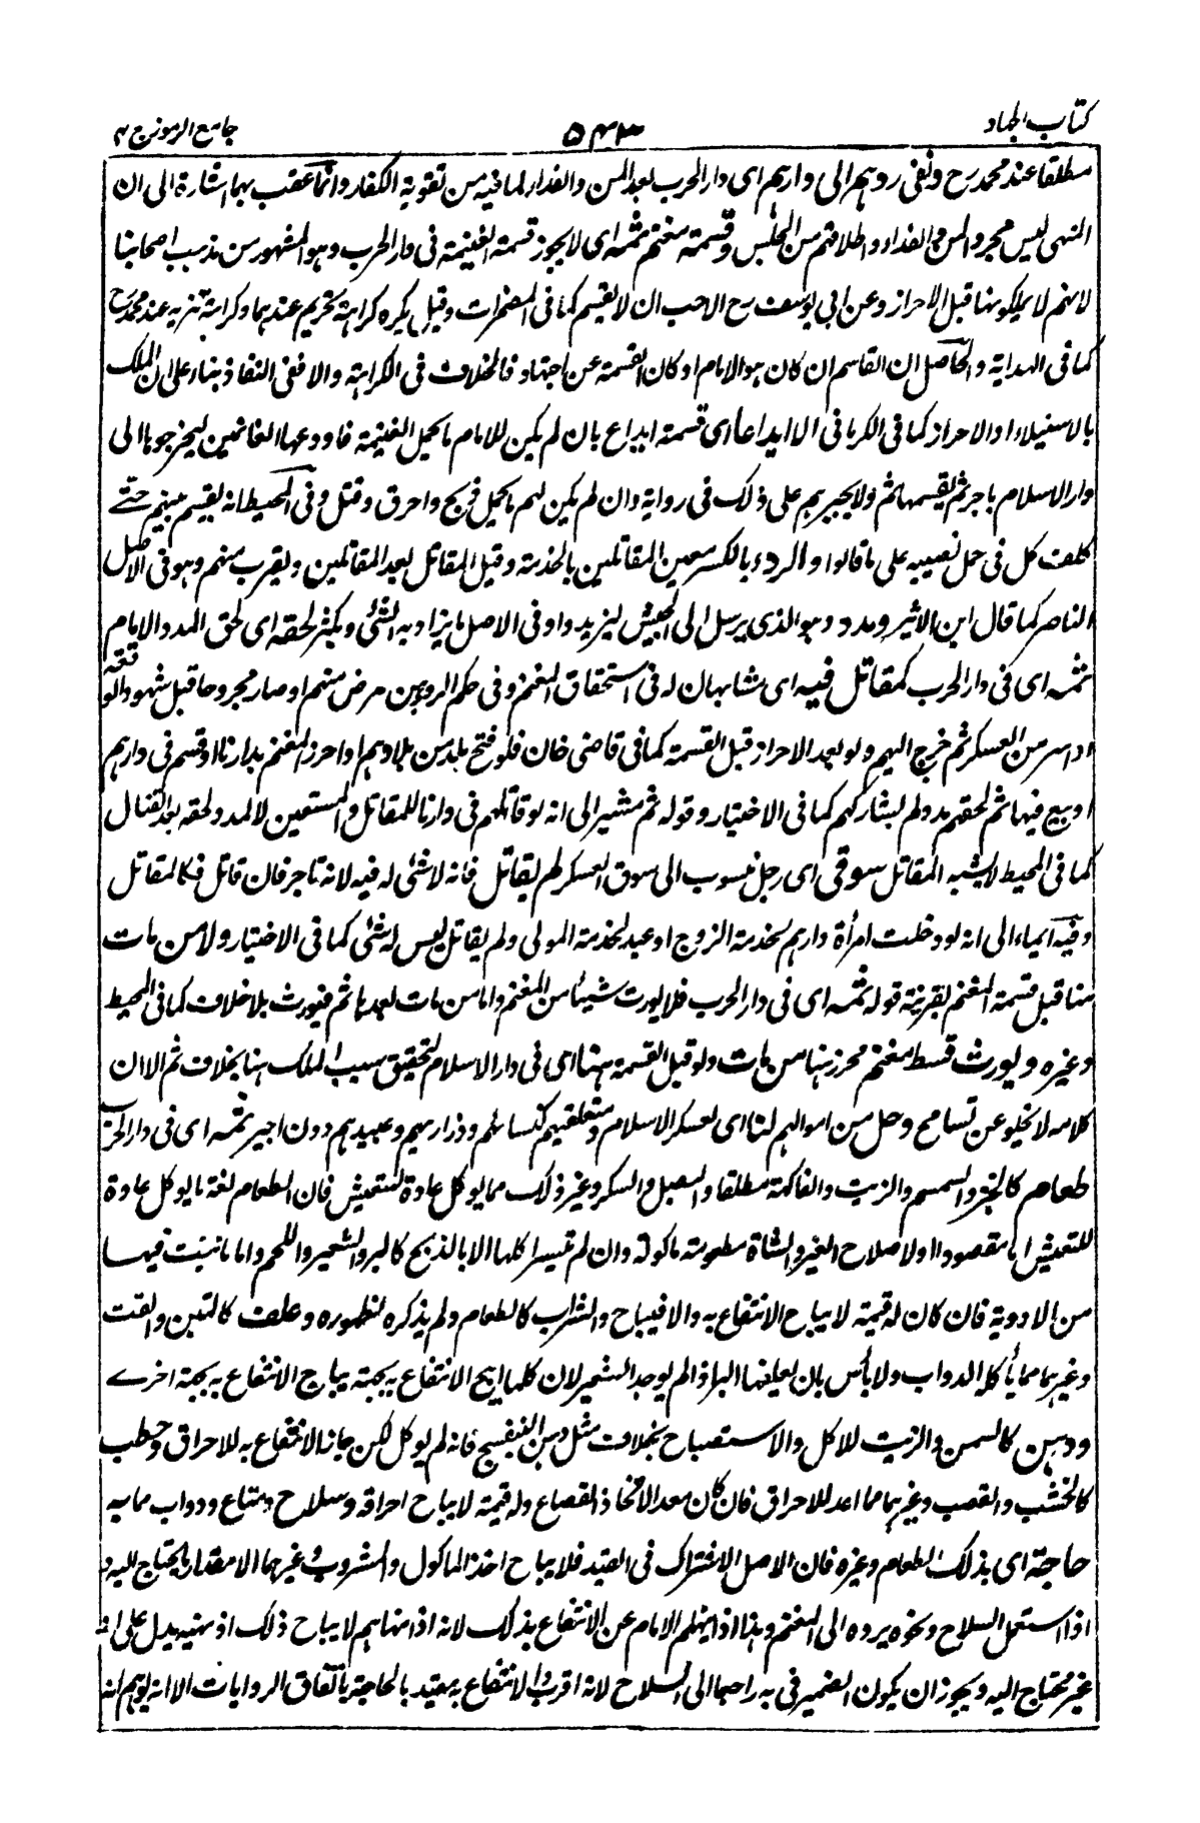 كتاب الجهاد ٥٤٣ جامع الرموز ج ٤
مطلقا عند محمد رح ونفى ردهم الى دارهم اى دار الحرب بعد المن والفداء لما فيه من تقوية الكفار وانما عقب بها اشارة الى ان
النهى ليس مجرد المن والفداء واطلاقهم من الحبس وقسمة مغنم ثمه اى لا يجوز قسمة الغنيمة فى دار الحرب وهو المشهور من مذهب اصحابنا
لانهم لا يملكونها قبل الاحراز وعن ابى يوسف رح الاحب ان لا يقسم كما فى المضمرات وقيل يكره كراهة تحريم عندهما وكراهة تنزيه عند محمد رح
كما فى الهداية والحاصل ان القاسم ان كان هو الامام او كان القسمة عن اجتهاد فالخلاف فى الكراهة والا ففى النفاذ بناء على ان الملك
بالاستيلاء او الاحراز كما فى الكرمانى الا ايداعا اى قسمة ايداع بان لم يكن للامام ما يحمل الغنيمة فاودعها الغانمين ليخرجوها الى
دار الاسلام باجر ثم يقسمها ثم ولا يجبرهم على ذلك فى رواية وان لم يكن لهم ما يحمل ذبح واحرق وقتل وفى المحيط انه يقسم بينهم حتى
كلف كل فى حمل نصيبه على ما قالوا والردء بالكسر معين المقاتلين بالخدمة وقيل المقاتل بعد المقاتلين ويقرب منهم وهو فى الاصل
الناصر كما قال ابن الاثير ومدد وهو الذى يرسل الى الجيش ليزيدوا وفى الاصل ما يزاد به الشئ ويكثر لحقه اى لحق المدد الامام
ثمه اى فى دار الحرب كمقاتل فيه اى مشابهان له فى استحقاق المغنم وفى حكم الردء من مرض منهم او صار مجروحا قبل شهود الوقعة
او اسر من العسكر ثم خرج اليهم ولو بعد الاحراز قبل القسمة كما فى قاضى خان فلو فتح بلد من بلادهم او احرز المغنم بدارنا او قسم فى دارهم
او بيع فيها ثم لحقهم مدد لم يشاركهم كما فى الاختيار وقوله ثم مشير الى انه لو قاتلهم فى دارنا للمقاتل والمستعين لا لمدد لحقه بعد القتال
كما فى المحيط لا يشبه المقاتل سوقى اى رجل منسوب الى سوق العسكر لم يقاتل فانه لا شئ له فيه لانه تاجر فان قاتل فكالمقاتل
وفيه ايماء الى انه لو دخلت امرأة دارهم لخدمة الزوج او عبد لخدمة المولى ولم يقاتل ليس له شئ كما فى الاختيار ولا من مات
منا قبل قسمة المغنم بقرينة قوله ثمه اى فى دار الحرب فلا يورث شيئا من المغنم واما من مات بعدها ثم فيورث بلا خلاف كما فى المحيط
وغيره ويورث قسط مغنم محرز هنا من مات ولو قبل القسمة ههنا اى فى دار الاسلام لتحقيق سبب الملك هنا بخلاف ثم الا ان
كلامه لا يخلو عن تسامح وحل من اموالهم لنا اى لعسكر الاسلام ومتعلقيهم كنسائهم وذراريهم وعبيدهم دون اجير ثمه اى فى دار الحرب
طعام كالخبز والسمسم والزيت والفاكهة مطلقا والبصل والسكر وغير ذلك مما يؤكل عادة للتعيش فان الطعام لغة ما يؤكل عادة
للتعيش اما مقصودا او لاصلاح الغير والشاة مطعومة ماكولة وان لم تيسر اكلها الا بالذبح كالبر والشعير واللحم واما ما نبت فيها
من الادوية فان كان له قيمة لا يباح الانتفاع به والا فيباح والشراب كالطعام ولم يذكره لظهوره وعلف كالتبن والقت
وغيرهما مما يأكله الدواب ولا بأس بان يعلفها البر اذا لم يوجد الشعير لان كلما ابيح الانتفاع به بجهة يباح الانتفاع به بجهة اخرى
ودهن كالسمن والزيت للاكل والاستصباح بخلاف مثل دهن البنفسج فانه لم يؤكل لكن جاز الانتفاع به للاحراق وحطب
كالخشب والقصب وغيرهما مما اعد للاحراق فان كان معدا لاتخاذ القصاع وله قيمة لا يباح احراقه وسلاح ومتاع ودواب مما به
حاجة اى بذلك الطعام وغيره فان الاصل الاشتراك فى القيد فلا يباح اخذ الماكول والمشروب وغيرهما الا مقدار ما يحتاج اليه
اذا استعمل السلاح ونحوه يرده الى المغنم وهذا اذا لم ينههم الامام عن الانتفاع بذلك لانه اذا نهاهم لا يباح ذلك اذ نهيه يدل على انه
غير محتاج اليه ويجوز ان يكون الضمير فى به راجعا الى السلاح لانه اقرب والانتفاع به مقيد بالحاجة باتفاق الروايات الا انه يوهم انه